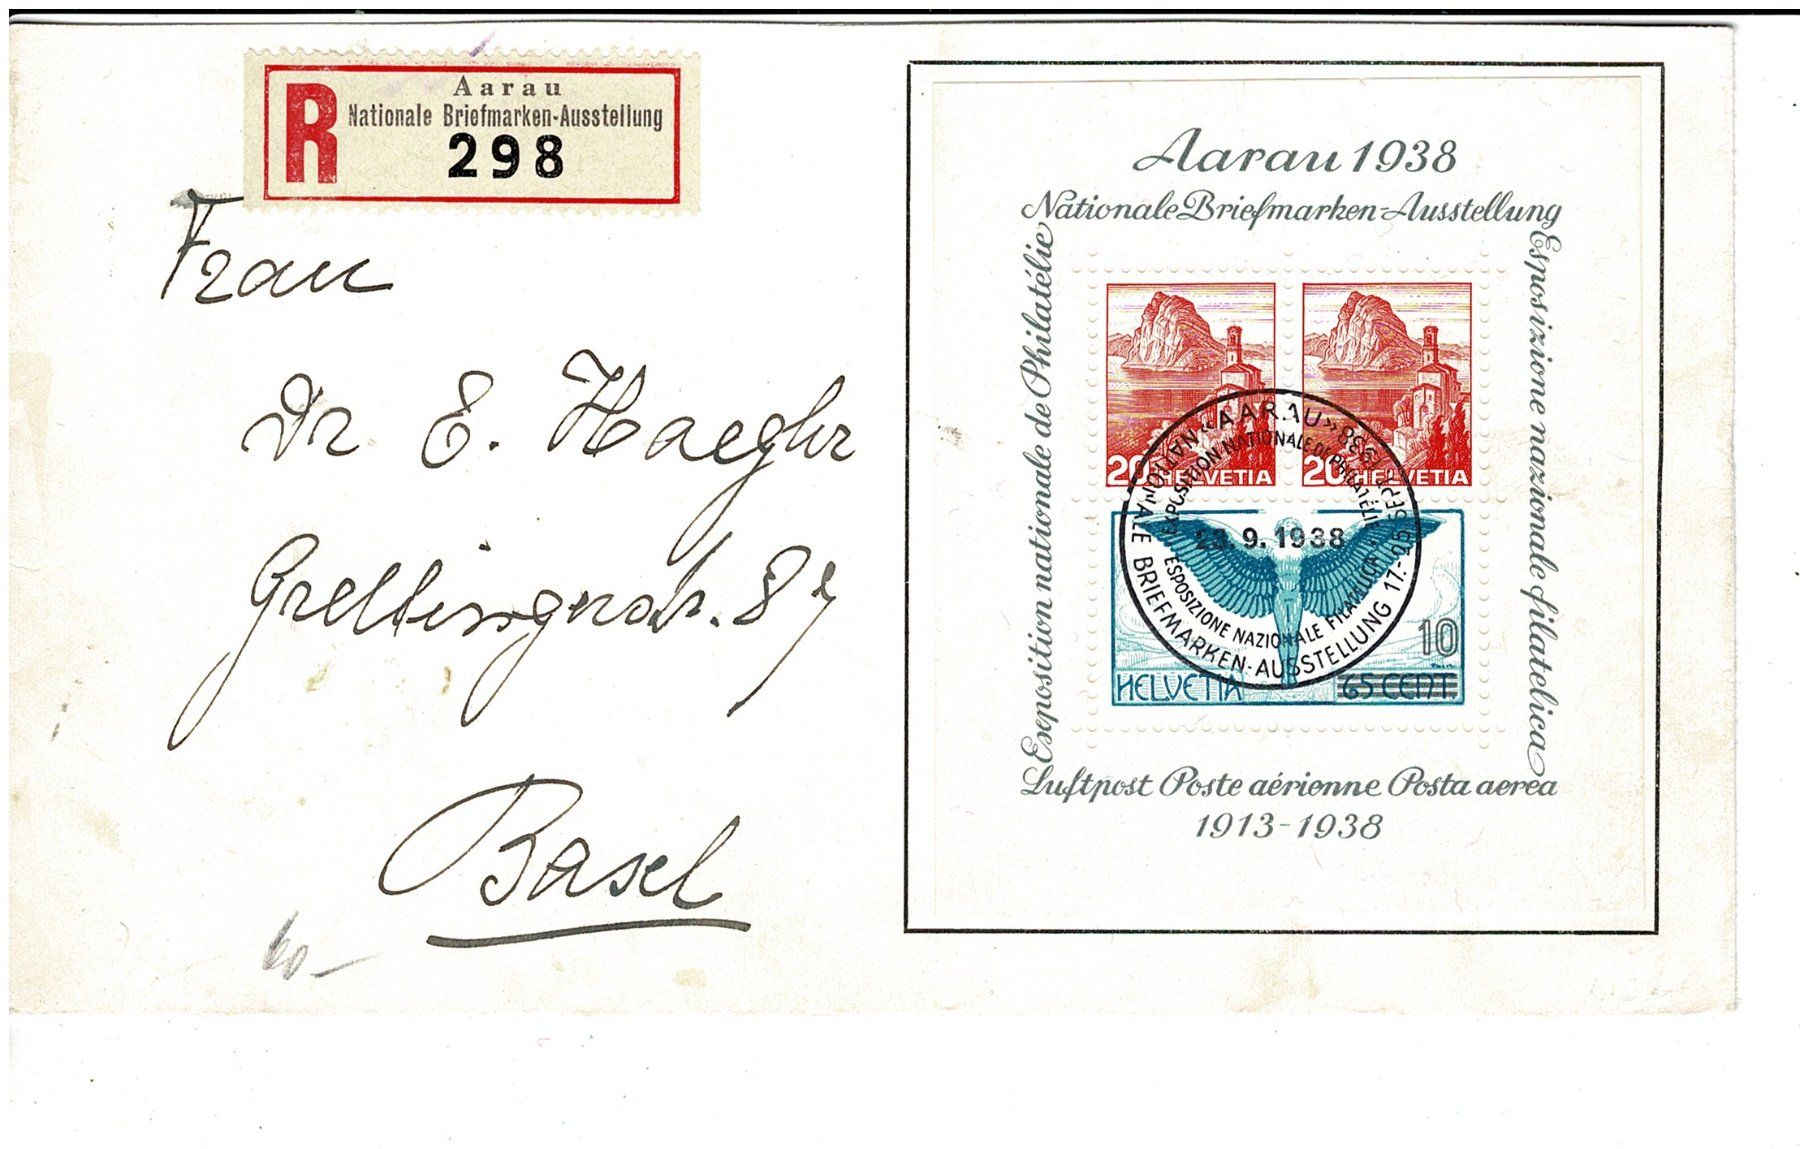 R
Aarau
Nationale Briefmarken-Ausstellung
298
Frau
Dr E. Haegler
Grellingerstr. 87
Basel
60 –
Aarau 1938
Nationale Briefmarken-Ausstellung
Exposition nationale de Philatélie
Esposizione nazionale filatelica
20 HELVETIA
20 HELVETIA
«AARAU»
NATIONALE BRIEFMARKEN-AUSSTELLUNG 17.-25. SEPT. 1938
EXPOSITION NATIONALE DE PHILATÉLIE
23.9.1938
ESPOSIZIONE NAZIONALE FILATELICA
10
HELVETIA 65 CENT.
Luftpost Poste aérienne Posta aerea
1913-1938